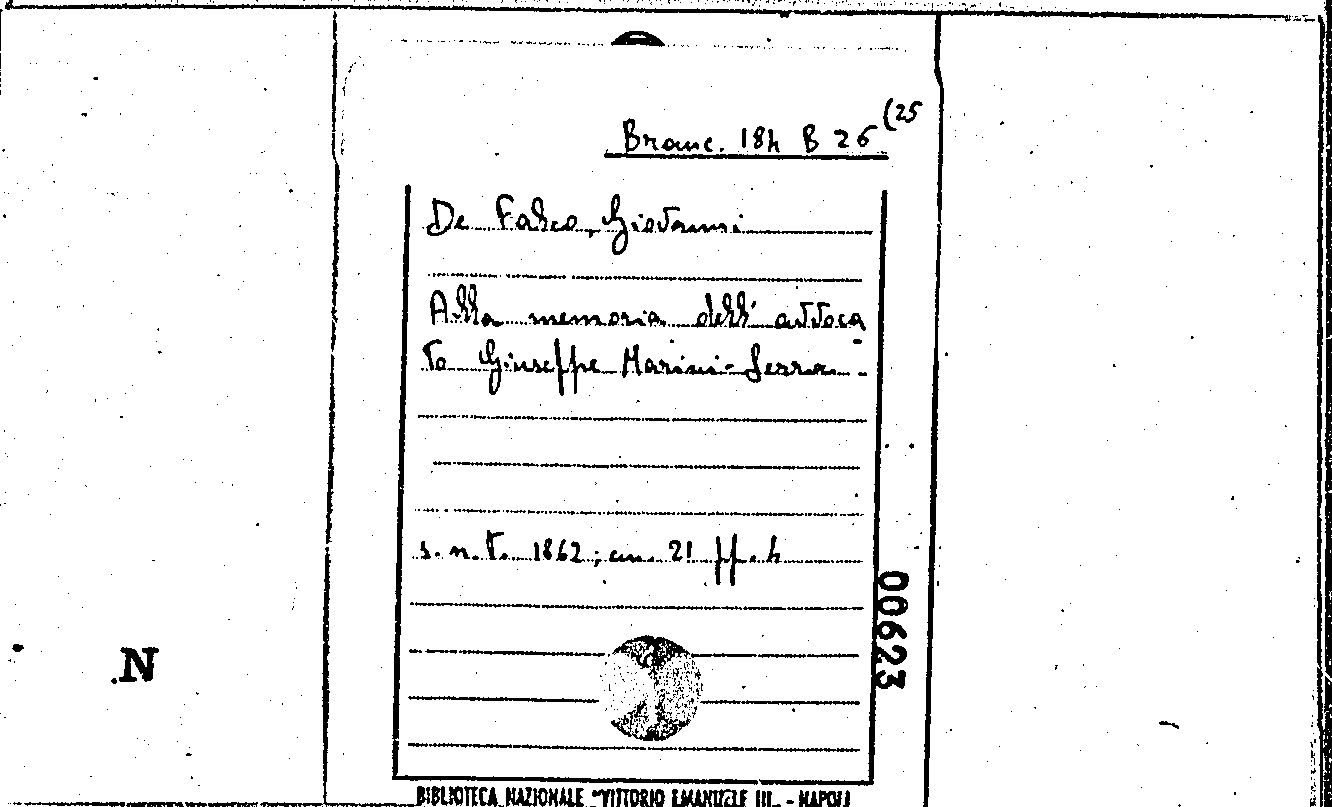 Branc. 184 B 26 (25
De Falco, Giovanni
Alla memoria dell'avvoca
to Giuseppe Marini-Serra.
s. n. t. 1862; cm. 21 pp. 4
00623
N
BIBLIOTECA NAZIONALE "VITTORIO EMANUELE III" - NAPOLI